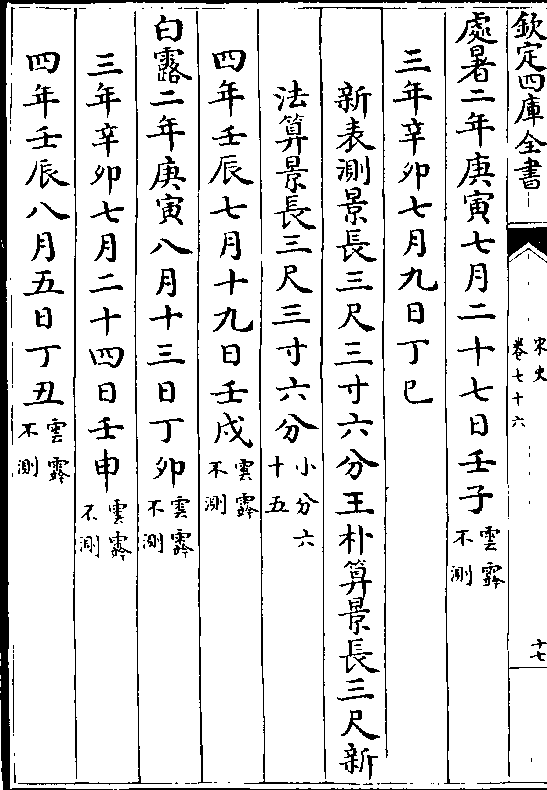 欽定四庫全書
宋史
卷七十六
十七
處暑二年庚寅七月二十七日壬子雲霧不測
三年辛卯七月九日丁巳
新表測景長三尺三寸六分王朴算景長三尺新
法算景長三尺三寸六分小分六十五
四年壬辰七月十九日壬戌雲霧不測
白露二年庚寅八月十三日丁卯雲霧不測
三年辛卯七月二十四日壬申雲霧不測
四年壬辰八月五日丁丑雲霧不測